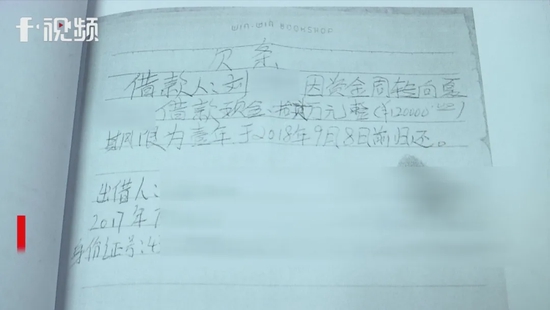 千·视频
WIN.WIN BOOKSHOP
欠条
借款人:刘 因资金周转向
借款现金 万元整(¥120000.00)
期限为壹年于2018年9月8日前归还。
出借人:
2017年
身份证号:4